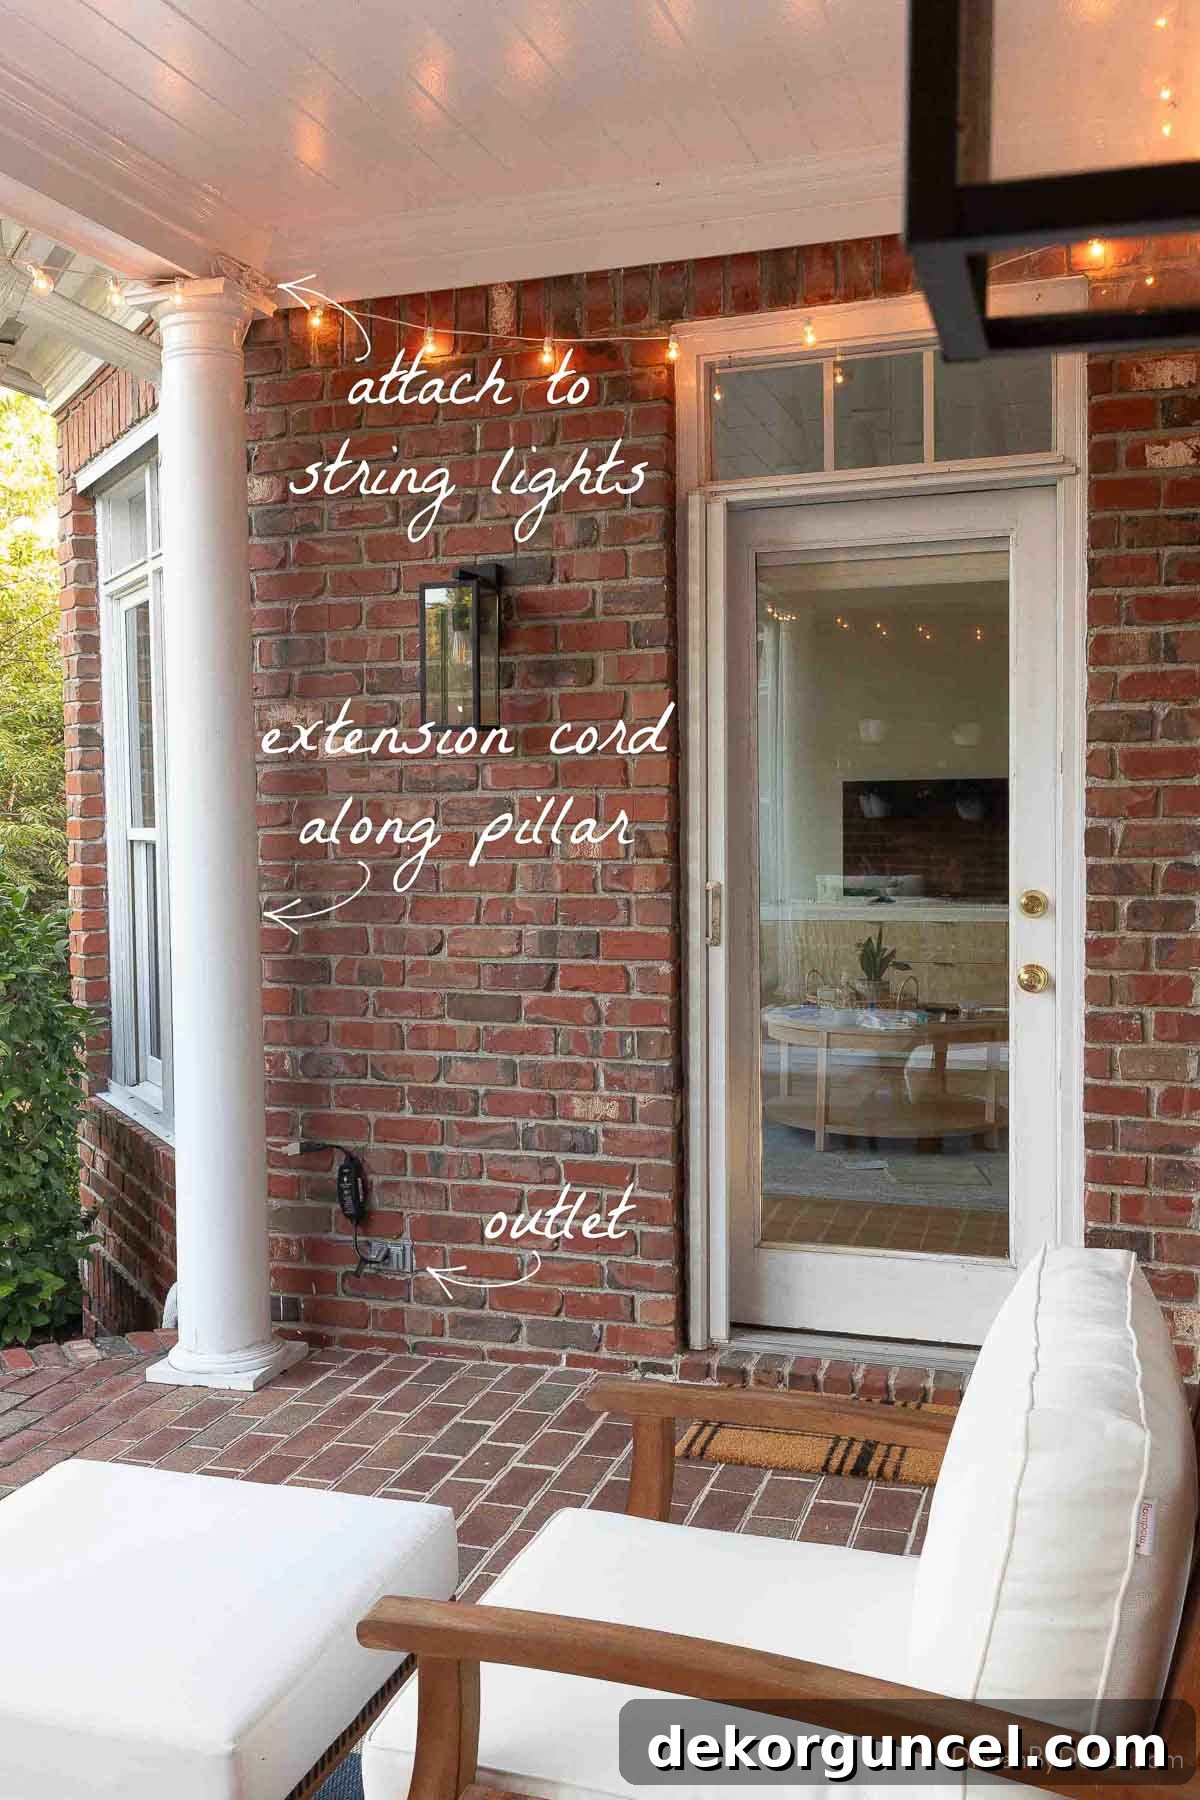 attach to
string lights
extension cord
along pillar
outlet
modway
dekorguncel.com